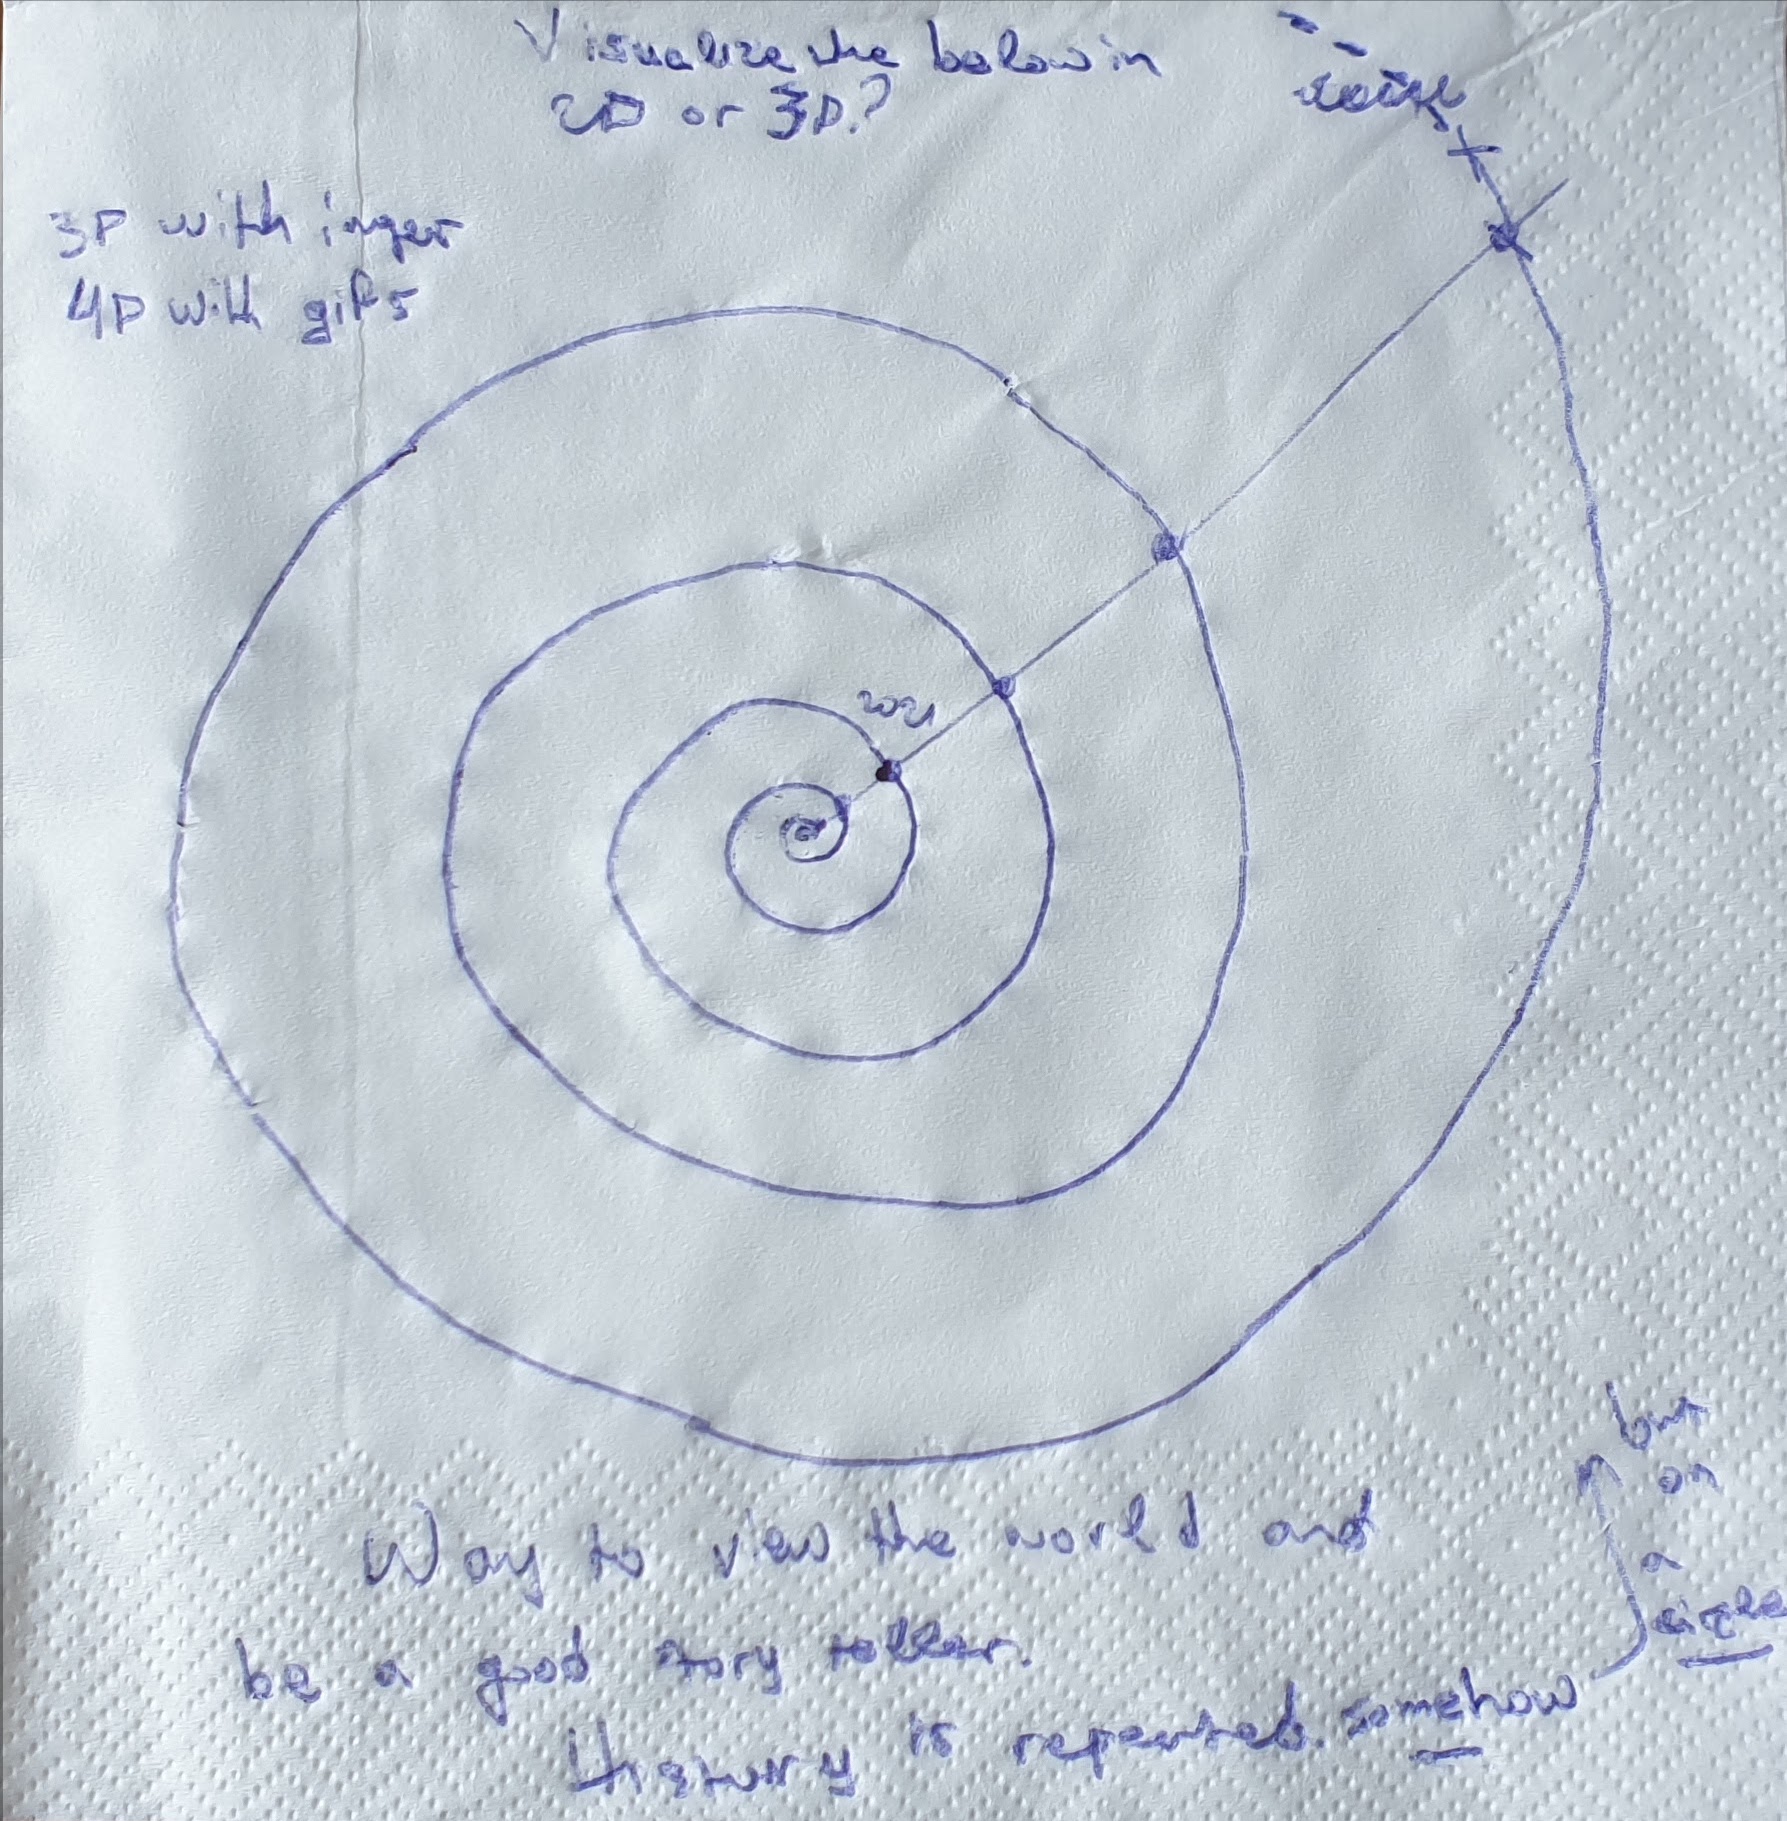 Visualize the below in
2D or 3D?
3D with
4D with gifs
2021
Way to view the world and
be a good story teller.
History is repeated. somehow
but
on
a